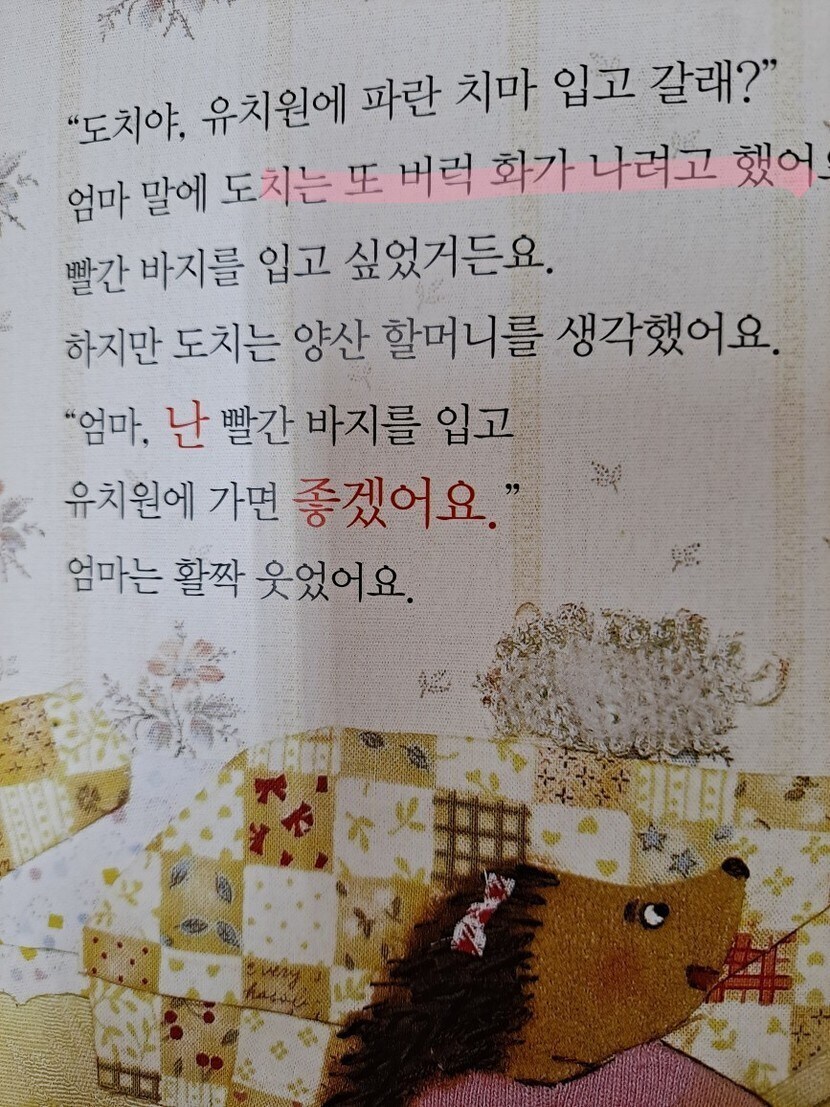 “도치야, 유치원에 파란 치마 입고 갈래?”
엄마 말에 도치는 또 버럭 화가 나려고 했어요
빨간 바지를 입고 싶었거든요.
하지만 도치는 양산 할머니를 생각했어요.
“엄마, 난 빨간 바지를 입고
유치원에 가면 좋겠어요.”
엄마는 활짝 웃었어요.
every